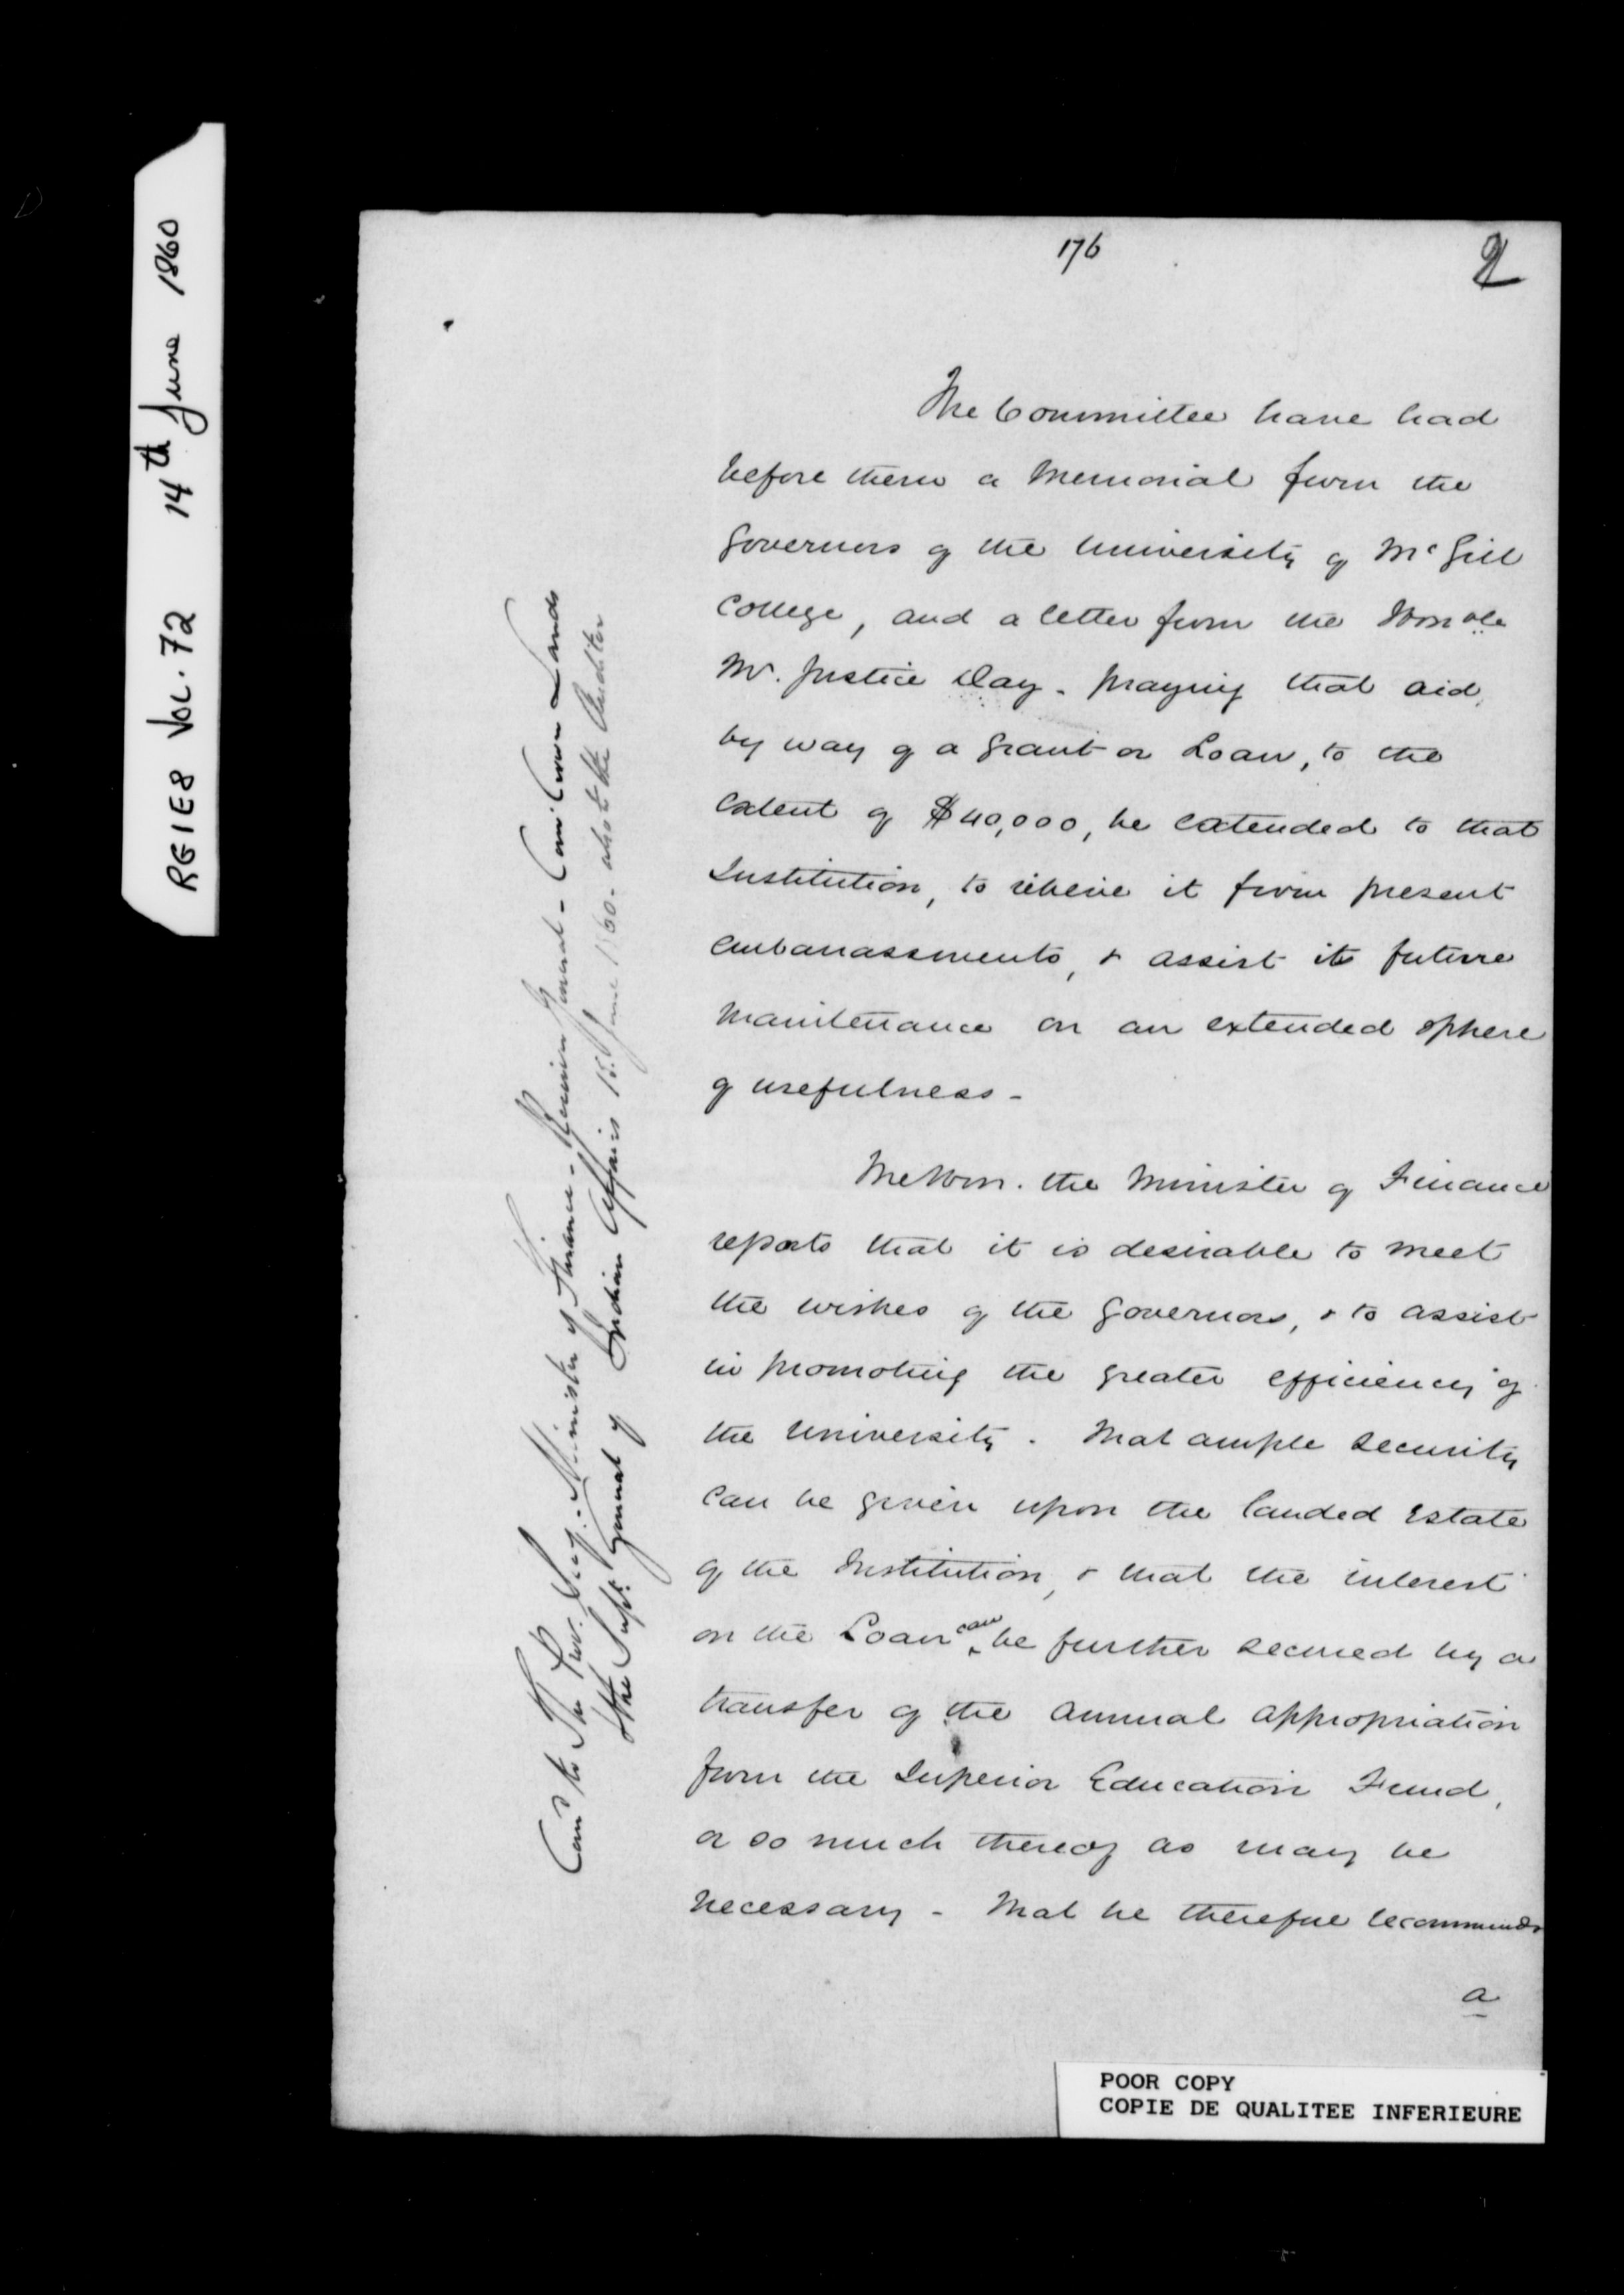 RG1E8 Vol. 72 14th June 1860
176
2
The Committee have had
before them a Memorial from the
Governors of the University of McGill
College, and a letter from the Honble
Mr. Justice Day - praying that aid,
by way of a grant or Loan, to the
Extent of $40,000, be extended to that
Institution, to relieve it from present
embarrassments, & assist its future
maintenance on an extended sphere
of usefulness -
The Hon. the Minister of Finance
reports that it is desirable to meet
the wishes of the Governors, & to assist
in promoting the greater efficiency of
the University. That ample security
can be given upon the landed Estate
of the Institution, & that the interest
on the Loan can be further secured by a
transfer of the Annual Appropriation
from the Superior Education Fund,
or so much thereof as may be
necessary - That he therefore recommends
a
to The Prov. Secy. - Minister of Finance - Receiver General - Com. Crown Lands
& the Supt. General of Indian Affairs 15 June 1860 - also to the Auditor
POOR COPY
COPIE DE QUALITEE INFERIEURE